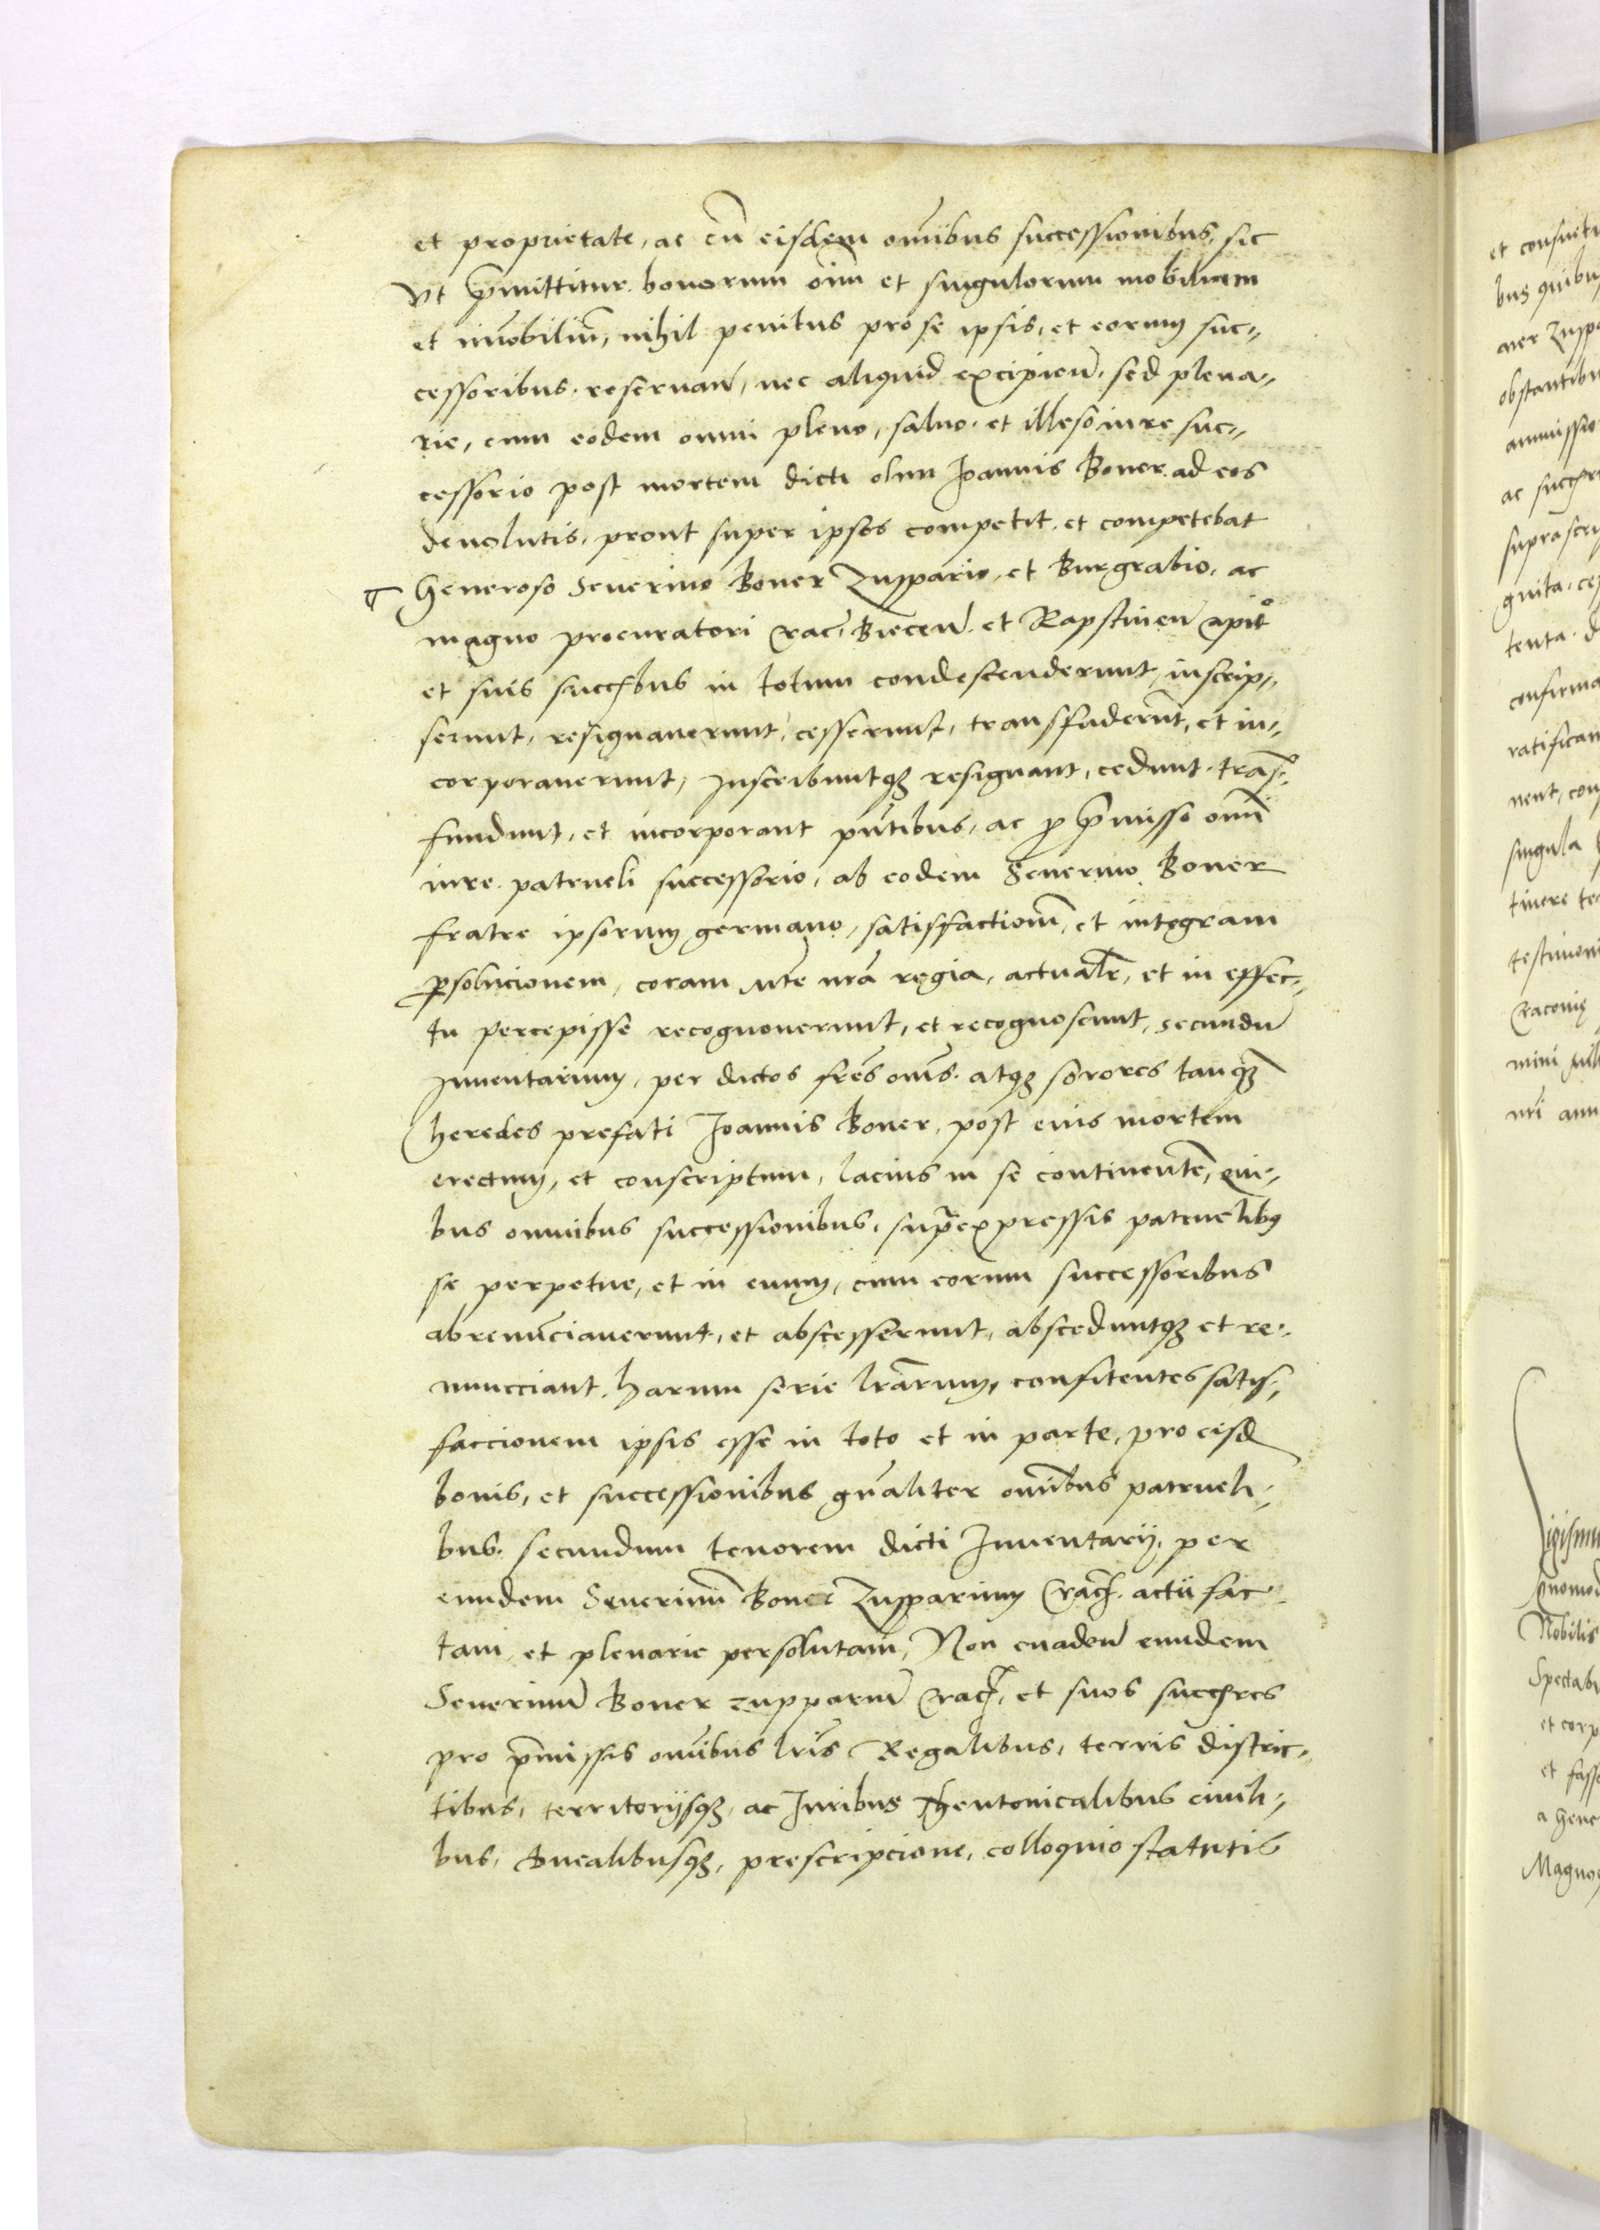 et proprietate, ac cũ eisdem om̃ibus successionibus, sic
Vt p̃mittitur. bonorum oĩm et singulorum mobilium
et im̃obiliũm, nihil penitus pro se ipsis, et eorum suc-
cessoribus. reseruañ, nec aliquid excipieñ. sed plena-
rie, cum eodem omni pleno, saluo. et illeso iure suc-
cessorio post mortem dicti olim Joannis Boner. ad eos
deuolutis, prout super ipsos competit. et competebat
Generoso Seuerino Boner Zuppario, et Burgrabio, ac
magno procuratori Crac̃, Biecceñ. et Rapstineñ
et suis succ̃bus in totum condescenderunt, inscrip-
serunt, resignauerunt, cesserunt, transfuderũt, et in-
corporauerunt, Inscribuntq3 resignant, cedunt. trãs-
fundunt, et incorporant pñtibus, ac p p̃misso om̃i
iure. patrueli successorio, ab eodem Seuerino Boner
fratre ipsorum germano, satisfactioñm, et integram
persolucionem, coram Mte nrã regia, actualr̃, et in effec-
tu percepisse recognouerunt, et recognoscunt, secundũ
Inuentarium, per dictos frẽs om̃s. atq3 sorores tanq3
heredes prefati Joannis Boner, post eius mortem
erectum, et conscriptum, lacius in se continentẽ, qui-
bus omnibus successionibus, supraexpressis patruelibus
se perpetue, et in euum, cum eorum successoribus
abrenũciauerunt, et abscesserunt, absceduntq3 et re-
nuncciant. harum serie lrãrum, confitentes satis-
faccionem ipsis esse in toto et in parte, pro eisd
bonis, et successionibus gñaliter om̃ibus patrueli-
bus. secundum tenorem dicti Inuentarij, per
eundem Seuerinũm Boner Zupparium Crac̃. actũ fac-
tam, et plenarie persolutam, Non euadeñ eundem
Seuerinũm Boner zupparium Crac̃, et suos succ̃res
pro p̃missis om̃ibus lrĩs Regalibus, terris distric-
tibus, territorijsq3, ac Juribus Theutonicalibus ciuili-
bus, Ducalibusq3, prescripcione, colloquio statutis
et consuetu
bus quibus
ner Zuppa
obstantibu
ammissio
ac succes
suprascri
quita. ce
tenta. d
confirma
ratifican
nent, con
singula
tinere te
testimoni
Cracouie
mini mil
nri ann
Sigismu
Quomod
Nobilis
Spectabi
et corp
et fasse
a Gener
Magno